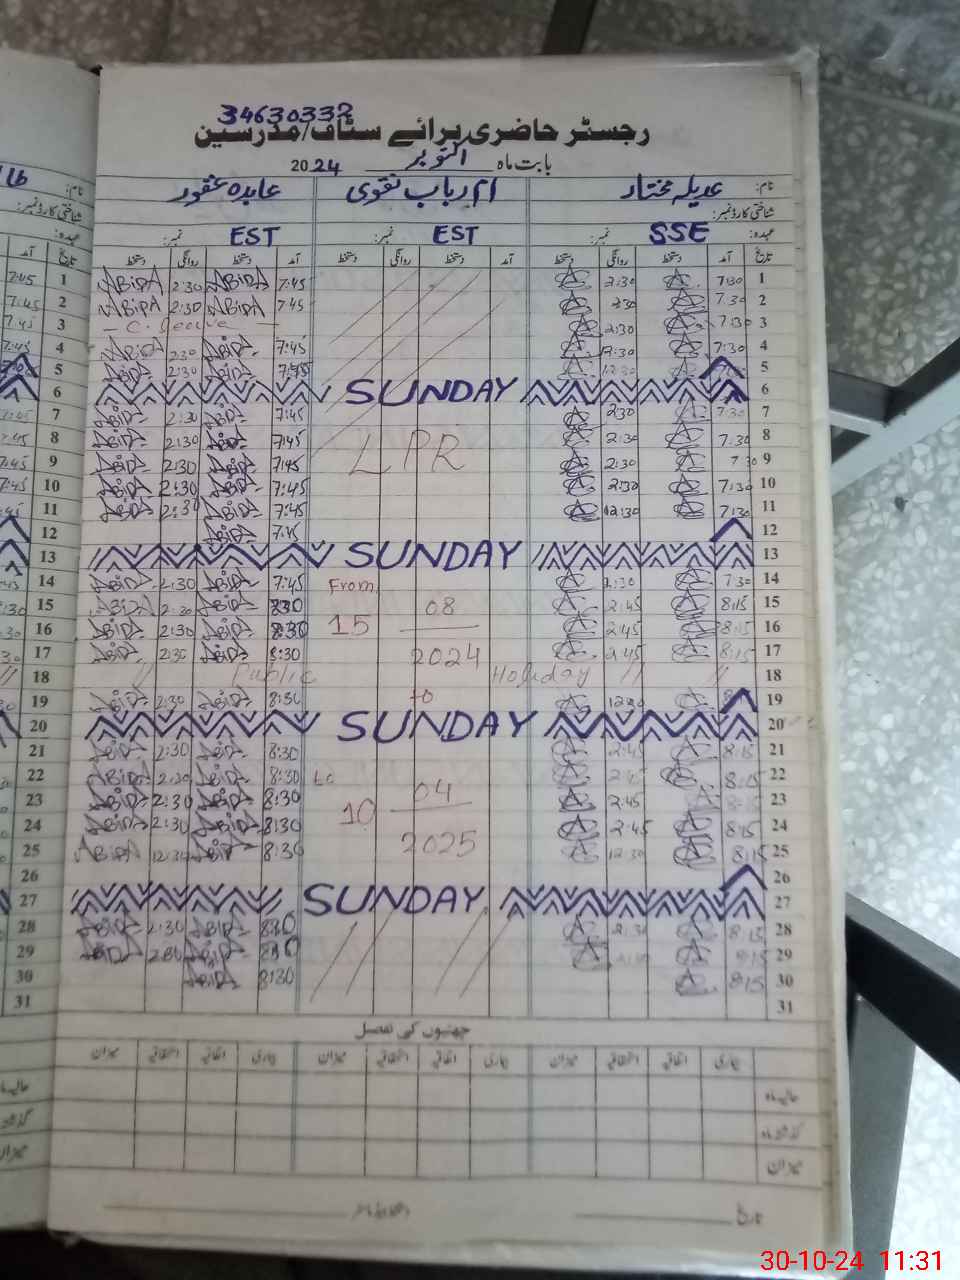 34630332
رجسٹر حاضری برائے سٹاف/مدرسین
بابت ماہ اکتوبر 2024
نام: عدیلہ مختار ام رباب نقوی عابدہ غفور
شناختی کارڈ نمبر:
عہدہ: SSE نمبر: EST نمبر: EST نمبر:
تاریخ آمد دستخط روانگی دستخط آمد دستخط روانگی دستخط آمد دستخط روانگی دستخط
1 7:30 2:30 7:45 ABiDA 2:30 ABiDA
2 7:30 2:30 7:45 ABiDA 2:30 ABiDA
3 7:30 2:30 — C. leave —
4 7:30 12:30 7:45 ABiDA 2:30 ABiDA
5 12:30 7:45 ABiDA 2:30 ABiDA
6 SUNDAY
7 7:30 2:30 7:45 ABiDA 2:30 ABiDA
8 7:30 2:30 7:45 ABiDA 2:30 ABiDA
9 7:30 2:30 LPR 7:45 ABiDA 2:30 ABiDA
10 7:30 2:30 7:45 ABiDA 2:30 ABiDA
11 7:30 12:30 7:45 ABiDA 2:30 ABiDA
12 7:45 ABiDA
13 SUNDAY
14 7:30 2:30 From 7:45 ABiDA 2:30 ABiDA
15 8:15 2:45 08 8:30 ABiDA 2:30 ABiDA
16 8:15 2:45 15 8:30 ABiDA 2:30 ABiDA
17 8:15 2:45 2024 8:30 ABiDA 2:30 ABiDA
18 // // Public Holiday // 18
19 12:30 to 8:30 ABiDA 2:30 ABiDA
20 SUNDAY
21 8:15 2:45 8:30 ABiDA 2:30 ABiDA
22 8:15 2:45 8:30 ABiDA 2:30 ABiDA
23 8:15 2:45 04 8:30 ABiDA 2:30 ABiDA
24 8:15 2:45 10 8:30 ABiDA 2:30 ABiDA
25 8:15 12:30 2025 8:30 ABiDA 12:30 ABiDA
26
27 SUNDAY
28 8:15 2:30 8:30 ABiDA 2:30 ABiDA
29 8:15 8:30 ABiDA ABiDA
30 8:15 8:30 ABiDA
31
چھٹیوں کی تفصیل
بیماری اتفاقیہ استحقاقیہ میزان بیماری اتفاقیہ استحقاقیہ میزان بیماری اتفاقیہ استحقاقیہ میزان
حالیہ ماہ
گذشتہ ماہ
میزان
تاریخ دستخط ہیڈ ماسٹر
30-10-24 11:31